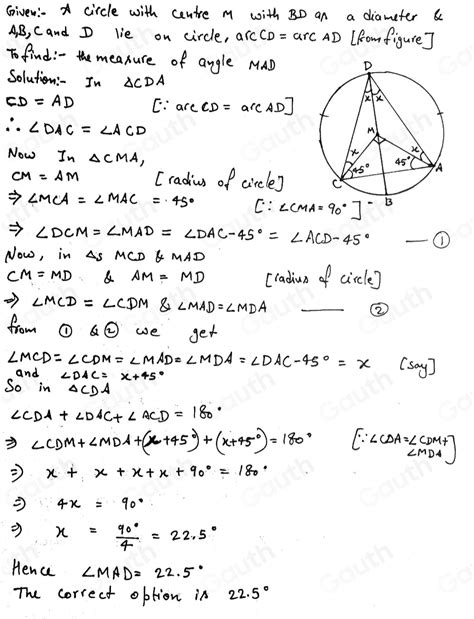 Given:- A circle with centre M with BD as a diameter &
A,B,C and D lie on circle, arc CD = arc AD [from figure]
To find:- the measure of angle MAD
Solution:- In △CDA
CD = AD [∵ arc CD = arc AD]
∴ ∠DAC = ∠ACD
Now In △CMA,
CM = AM [radius of circle]
⇒ ∠MCA = ∠MAC = 45° [∵ ∠CMA = 90°]
⇒ ∠DCM = ∠MAD = ∠DAC-45° = ∠ACD-45° — ①
Now, in △s MCD & MAD
CM = MD & AM = MD [radius of circle]
⇒ ∠MCD = ∠CDM & ∠MAD = ∠MDA — ②
from ① & ② we get
∠MCD = ∠CDM = ∠MAD = ∠MDA = ∠DAC-45° = x [say]
and ∠DAC = x+45°
So in △CDA
∠CDA + ∠DAC + ∠ACD = 180°
⇒ ∠CDM + ∠MDA + (x+45°) + (x+45°) = 180° [∵ ∠CDA = ∠CDM +
∠MDA]
⇒ x + x + x + x + 90° = 180°
⇒ 4x = 90°
⇒ x = 90°/4 = 22.5°
Hence ∠MAD = 22.5°
The correct option is 22.5°
D
x x
M
x x
45° 45°
C A
B
Gauth